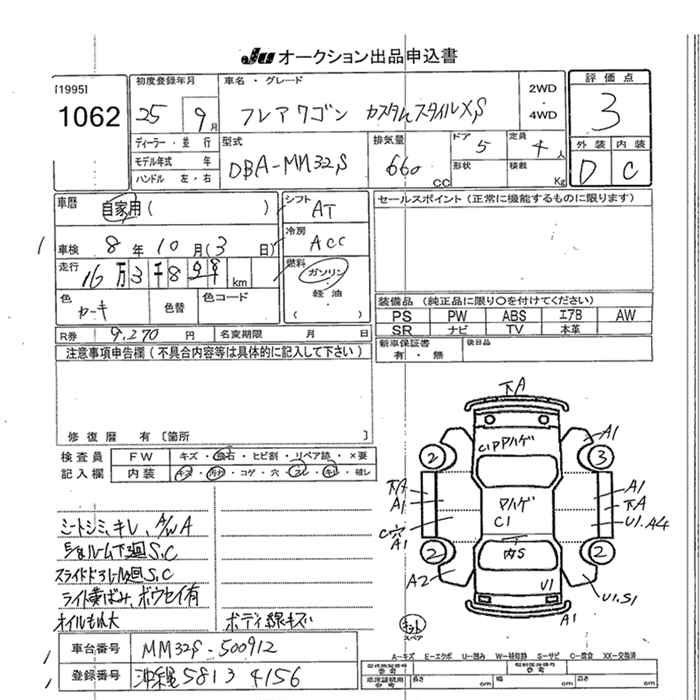 JU オークション出品申込書
[1995]
1062
初度登録年月
25 9月
車名・グレード
フレアワゴン カスタムスタイルXS
2WD
・
4WD
評価点
3
外装 内装
D C
ディーラー・並行
モデル年式 年
ハンドル 左・右
型式
DBA-MM32S
排気量
660 CC
ドア
5
形状
定員
4人
積載
Kg
車歴
自家用( )
シフト
AT
セールスポイント(正常に機能するものに限ります)
車検 8年10月(3日)
冷房
ACC
走行 16万3千8 km
燃料
ガソリン
・
軽油
( )
色
カーキ
色替
色コード
装備品(純正品に限り○を付けてください)
PS PW ABS エアB AW
SR ナビ TV 本革
R券 9,270円
名変期限 月 日
新車保証書
有・無
後日品
注意事項申告欄(不具合内容等は具体的に記入して下さい)
修復歴 有〔箇所 〕
検査員
記入欄
FW キズ・飛石・ヒビ割・リペア跡・×要
内装 キズ・汚れ・コゲ・穴・スレ・キレ・破レ
シートシミ、キレ、A/W A
ルーム下廻S,C
スライドドアレール廻S,C
ライト黄ばみ、ボウセイ有
オイルもれ大
ボディ線キズ
下A
C1Pアハゲ
A1
2
3
下A
A1
C穴
A1
アハゲ
C1
A1
下A
U1.A4
2
2
内S
A2
U1
U1.S1
A1
キット
スペア
車台番号 MM32S-500912
登録番号 沖縄 581 3 4156
A−キズ E−エクボ U−凹み W−補修跡 S−サビ C−腐食 XX−交換済
長さ cm 幅 cm 高さ cm